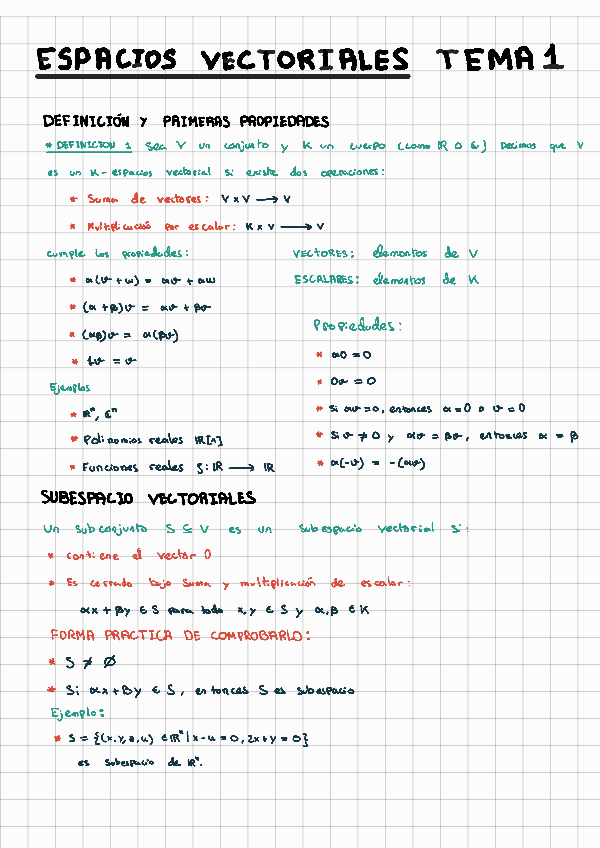 ESPACIOS VECTORIALES TEMA 1
DEFINICIÓN Y PRIMERAS PROPIEDADES
* DEFINICION 1 Sea V un conjunto y K un cuerpo (como ℝ o ℂ) Decimos que V
es un K-espacios vectorial si existe dos operaciones:
* Suma de vectores: V x V → V
* Multiplicació por escalar: K x V → V
cumple las propiedades:
* α(v + w) = αv + αw
* (α + β)v = αv + βv
* (αβ)v = α(βv)
* 1v = v
Ejemplos
* ℝⁿ, ℂⁿ
* Polinomios reales ℝ[x]
* Funciones reales f: ℝ → ℝ
VECTORES: elementos de V
ESCALARES: elementos de K
Propiedades:
* α0 = 0
* 0v = 0
* Si αv = 0, entonces α = 0 o v = 0
* Si v ≠ 0 y αv = βv, entonces α = β
* α(-v) = -(αv)
SUBESPACIO VECTORIALES
Un subconjunto S ⊆ V es un subespacio vectorial si:
* contiene el vector 0
* Es cerrado bajo suma y multiplicación de escalar:
αx + βy ∈ S para todo x, y ∈ S y α, β ∈ K
FORMA PRACTICA DE COMPROBARLO:
* S ≠ Ø
* Si αx + βy ∈ S, entonces S es subespacio
Ejemplo:
* S = {(x, y, z, u) ∈ ℝ⁴ | x - u = 0, 2x + y = 0}
es subespacio de ℝ⁴.